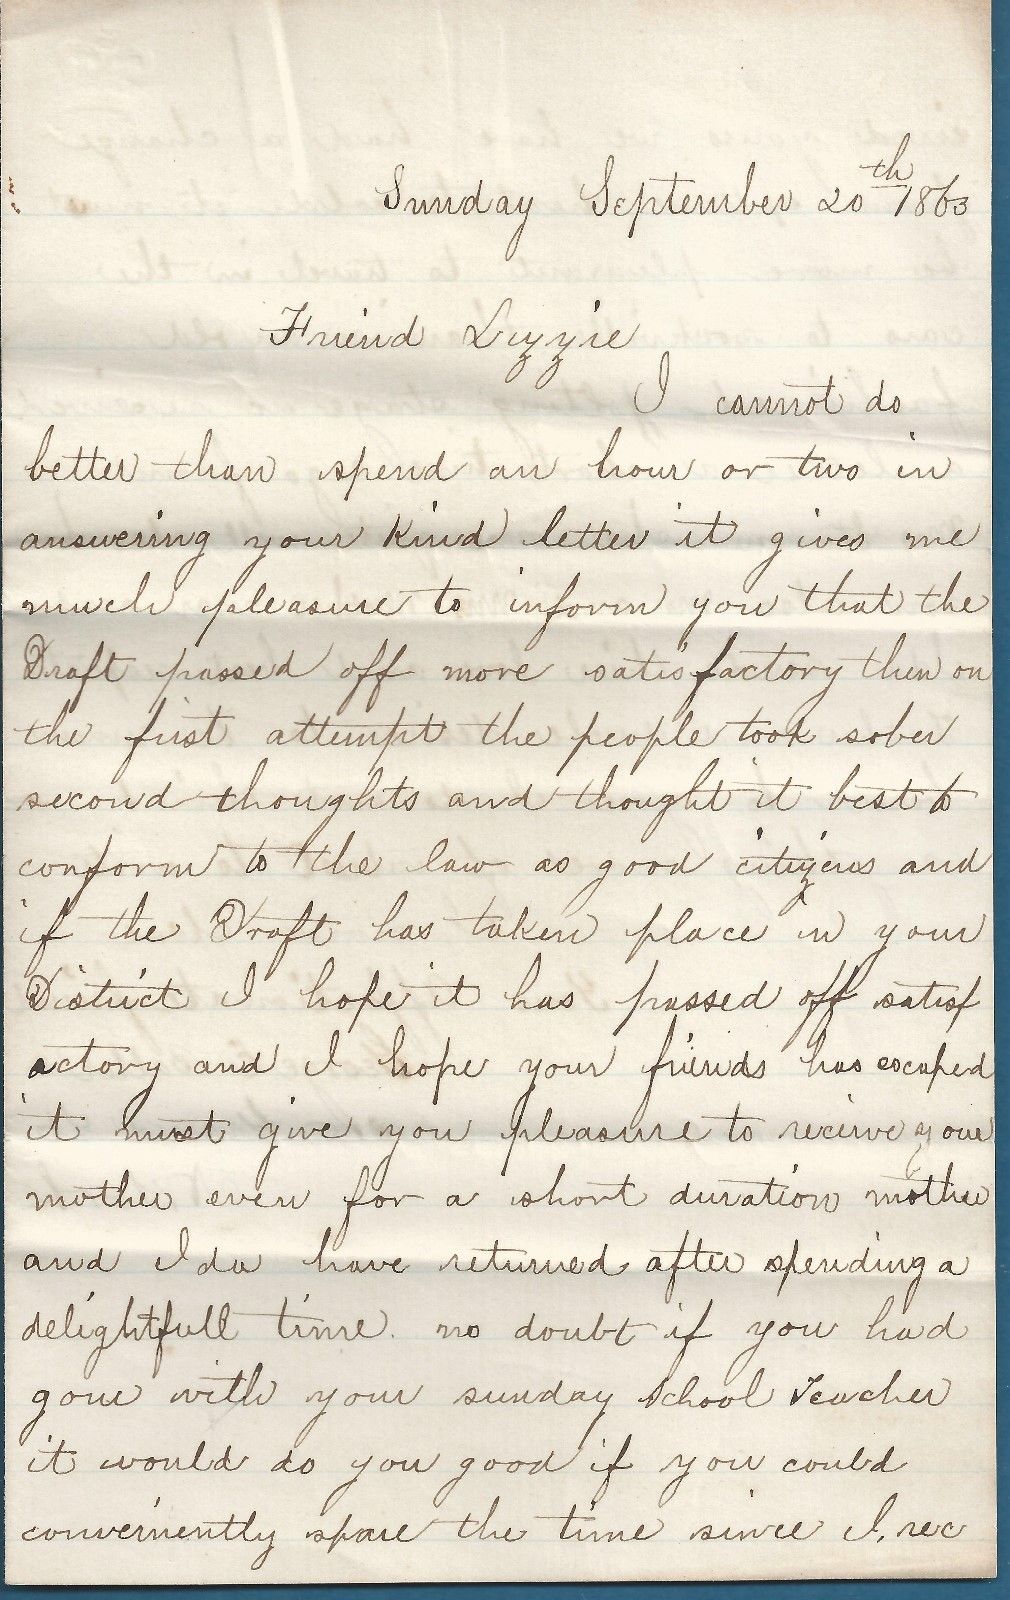 Sunday September 20th 1863
Friend Lizzie
I cannot do
better than spend an hour or two in
answering your kind letter it gives me
much pleasure to inform you that the
Draft passed off more satisfactory then on
the first attempt the people took sober
second thoughts and thought it best to
conform to the law as good citizens and
if the Draft has taken place in your
District I hope it has passed off satisf
actory and I hope your friends has escaped
it must give you pleasure to recieve your
mother even for a short duration mother
and Ida have returned after spending a
delightfull time. no doubt if you had
gone with your sunday School Teacher
it would do you good if you could
conveniently spare the time since I, rec